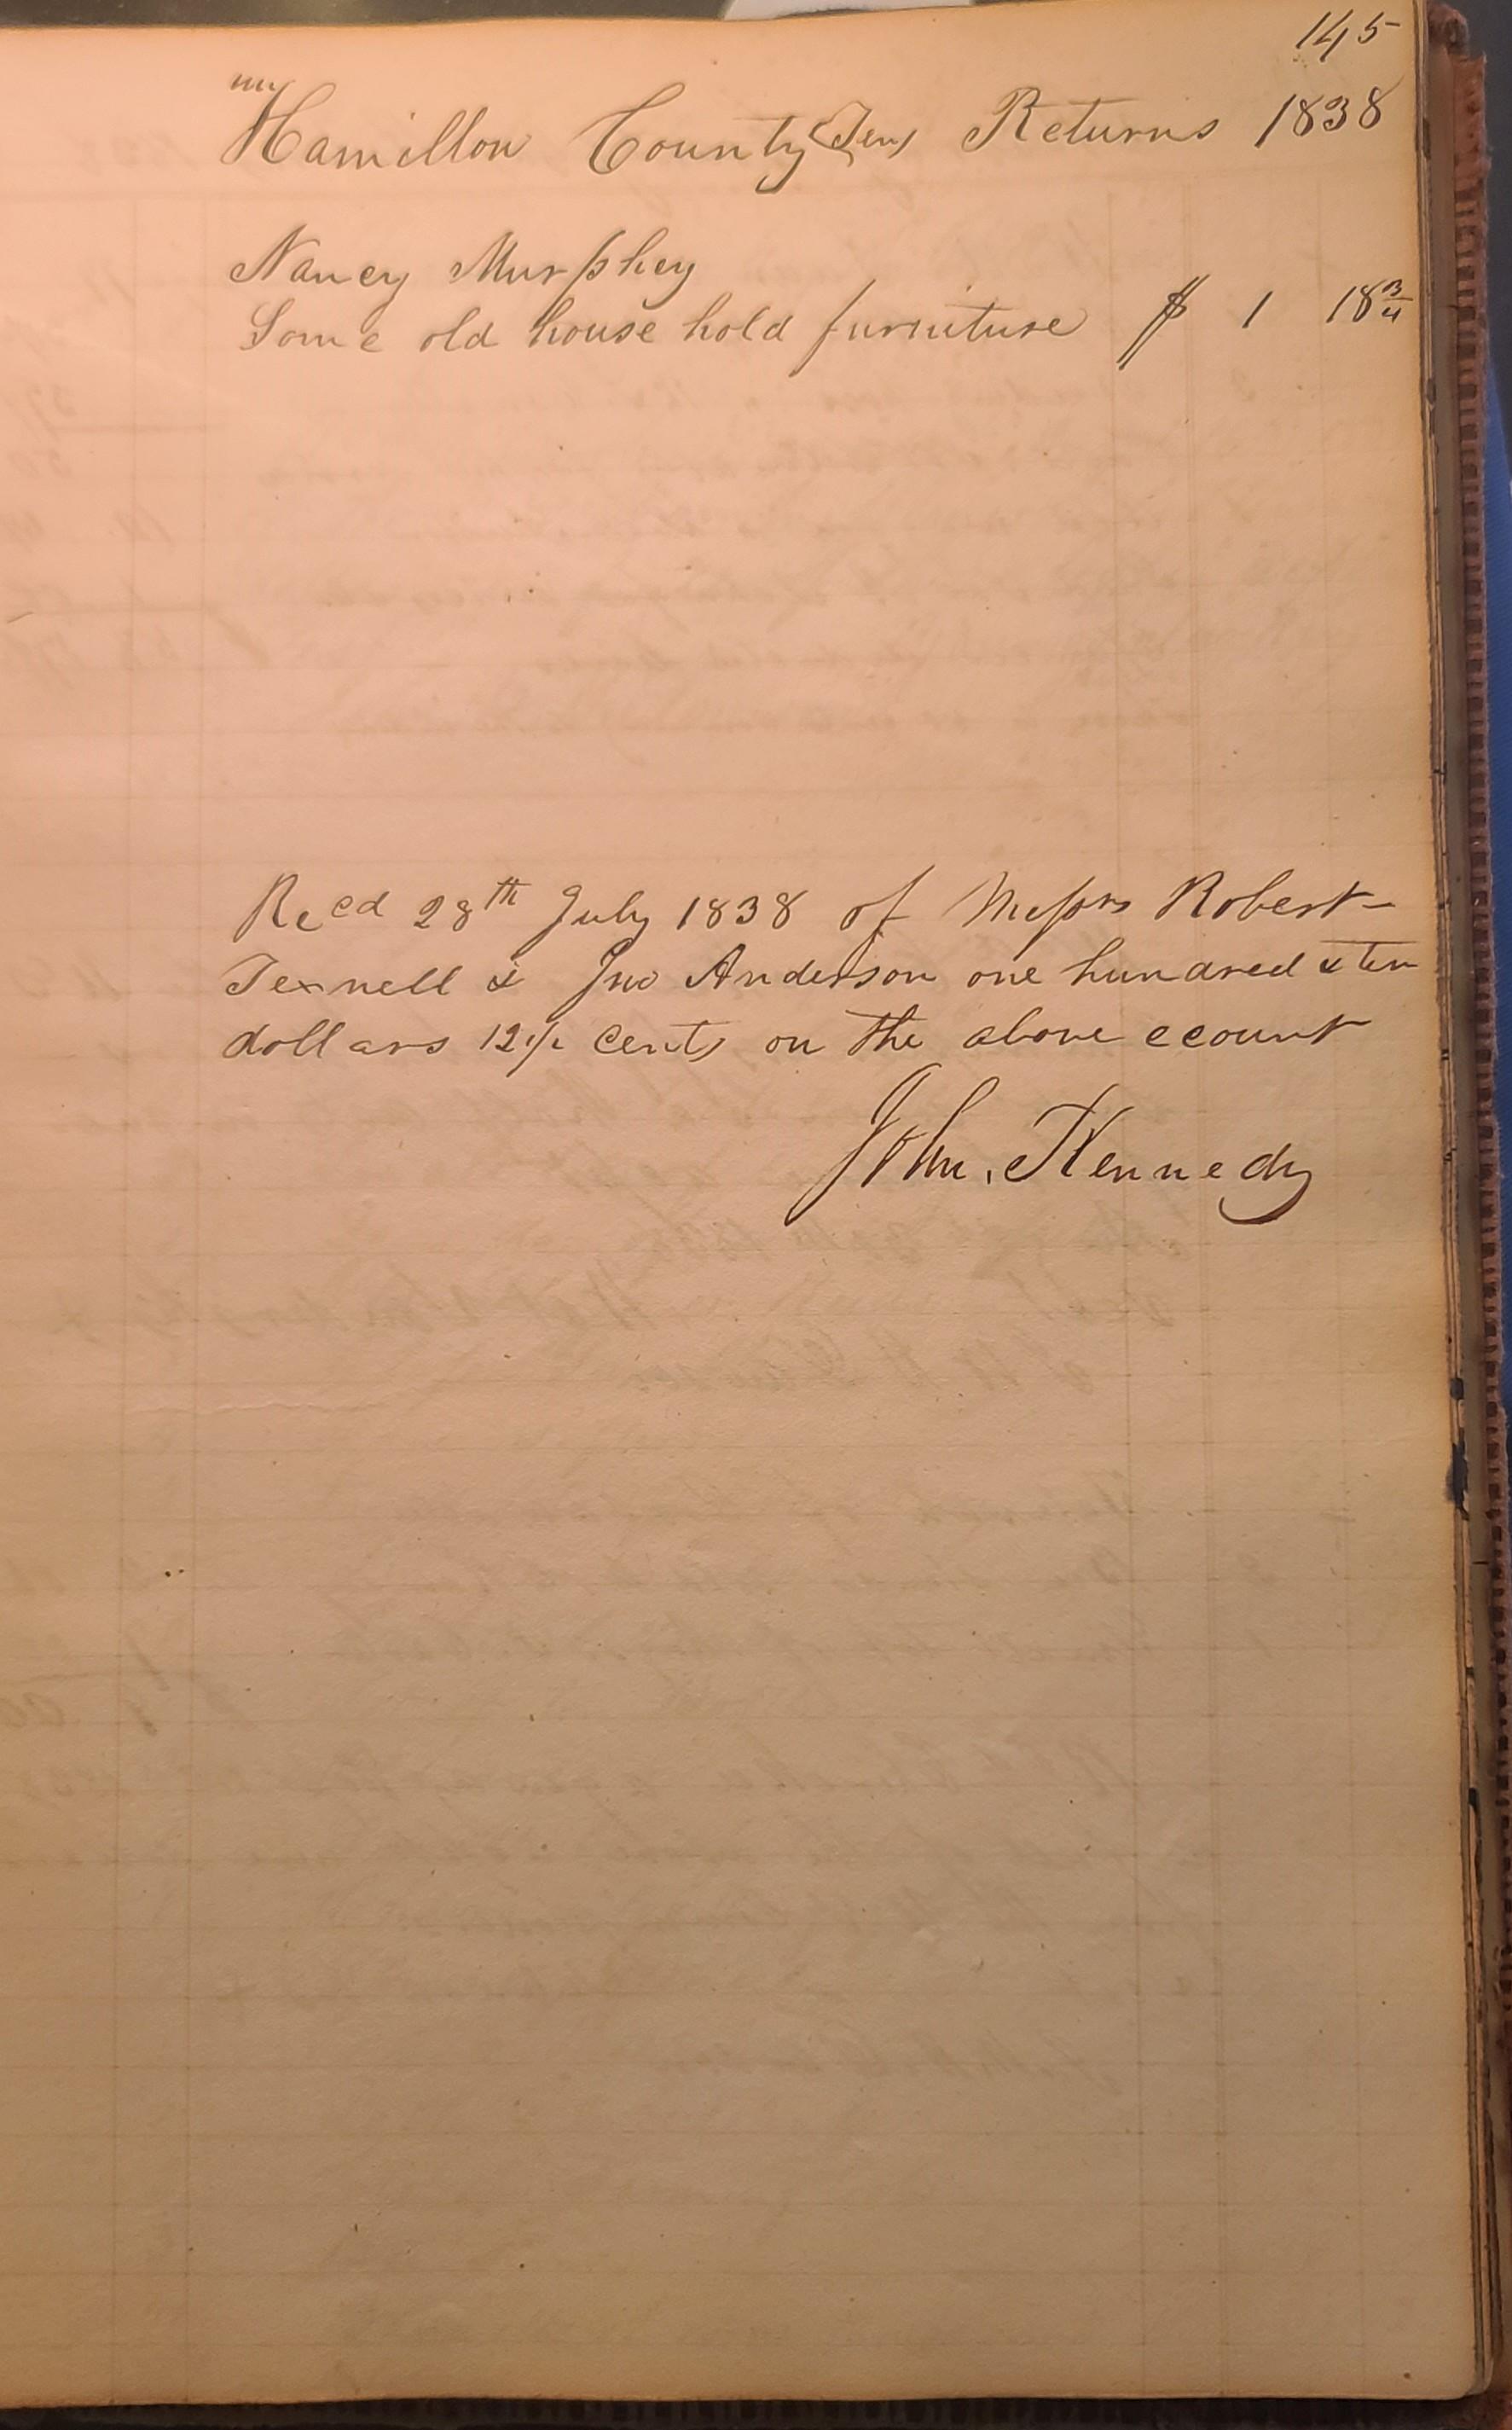 145
Hamillon County Ten Returns 1838
Nancy Murphey
Some old house hold furniture $ 1 18 3/4
Recd 28th July 1838 of Messrs Robert
Texnell & Jno Anderson one hundred & ten
dollars 12 1/2 cents on the above ecount
John. Kennedy